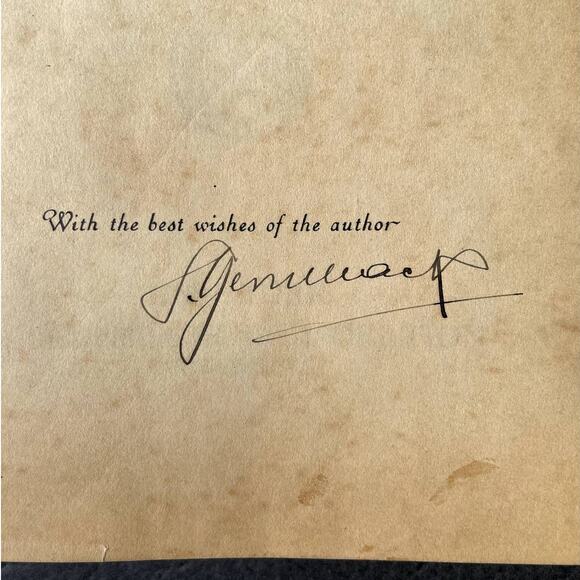 With the best wishes of the author